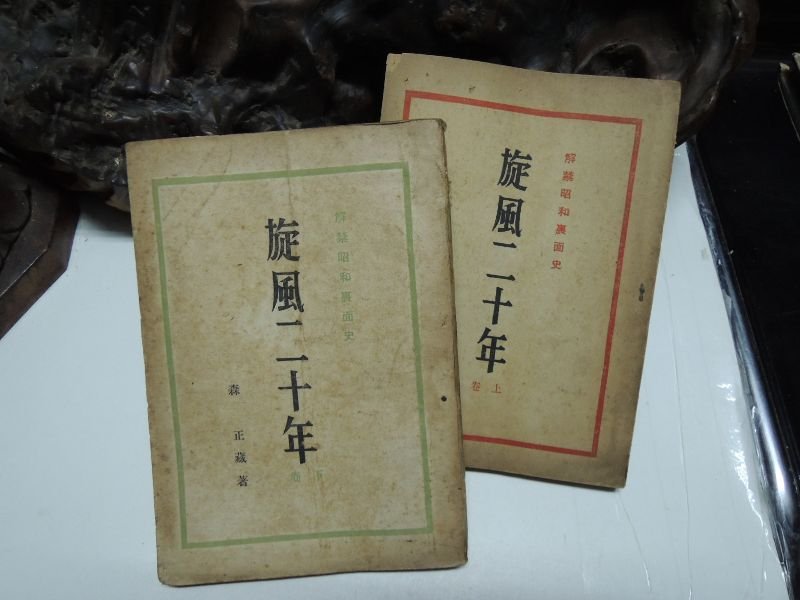 解禁昭和裏面史
旋風二十年
森 正蔵 著
解禁昭和裏面史
旋風二十年
上卷